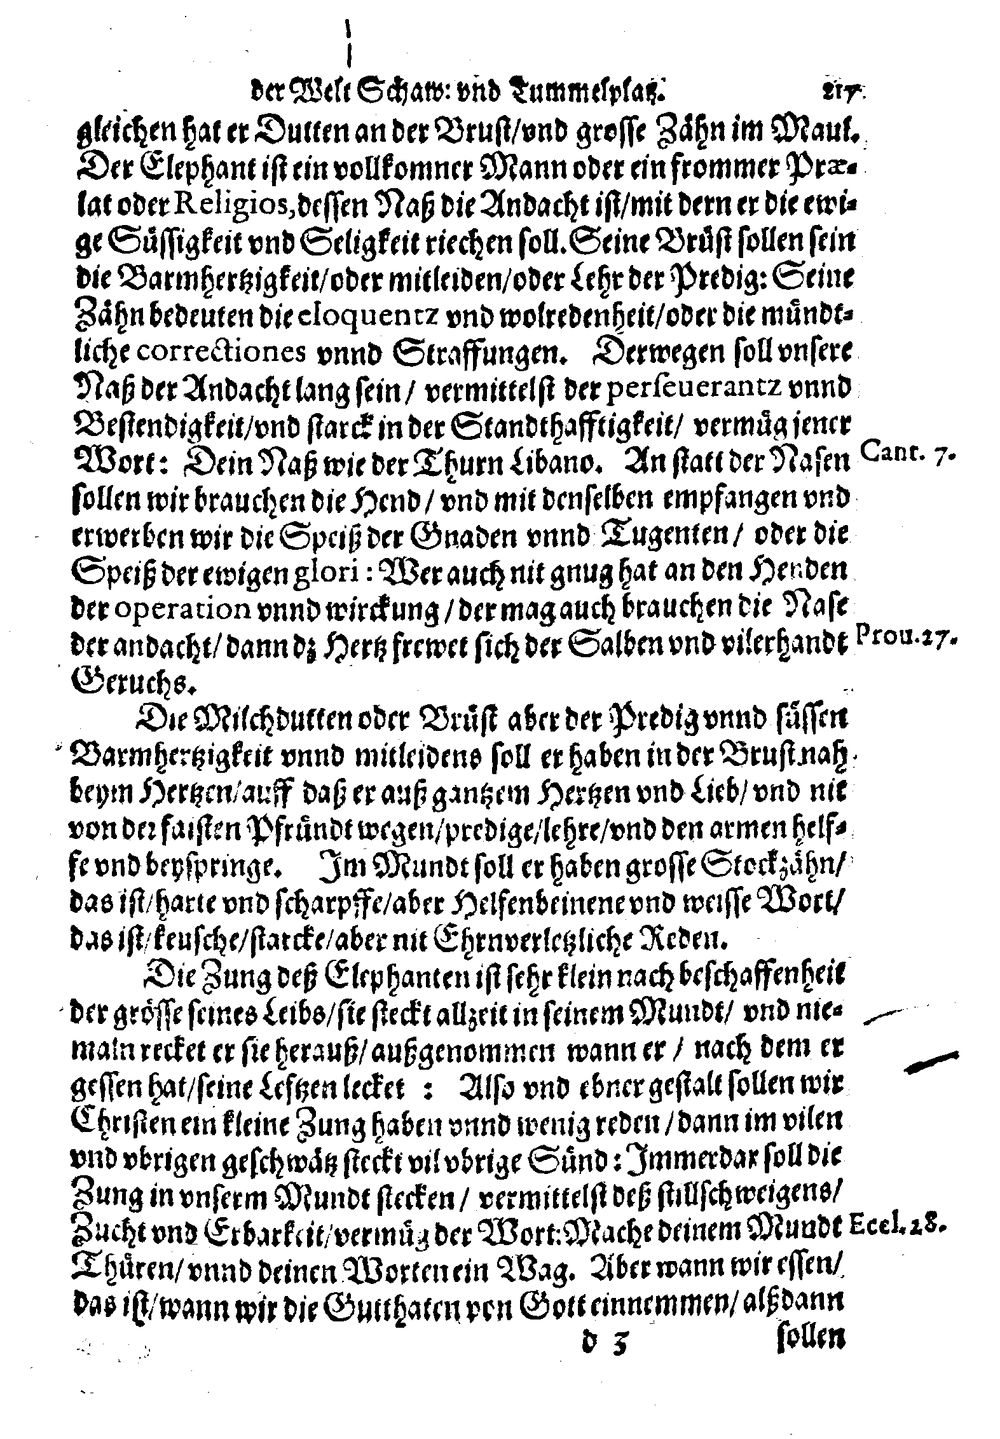 der Welt Schaw: vnd Tummelplatz. 217.
gleichen hat er Dutten an der Brust/vnd grosse Zähn im Maul.
Der Elephant ist ein vollkomner Mann oder ein frommer Præ-
lat oder Religios, dessen Naß die Andacht ist/mit dern er die ewi-
ge Süssigkeit vnd Seligkeit riechen soll. Seine Brüst sollen sein
die Barmhertzigkeit/oder mitleiden/oder Lehr der Predig: Seine
Zähn bedeuten die eloquentz vnd wolredenheit/oder die mündt-
liche correctiones vnnd Straffungen. Derwegen soll vnsere
Naß der Andacht lang sein/ vermittelst der perseuerantz vnnd
Bestendigkeit/vnd starck in der Standthafftigkeit/ vermüg jener
Wort: Dein Naß wie der Thurn Libano. An statt der Nasen Cant. 7.
sollen wir brauchen die Hend/ vnd mit denselben empfangen vnd
erwerben wir die Speiß der Gnaden vnnd Tugenten/ oder die
Speiß der ewigen glori: Wer auch nit gnug hat an den Henden
der operation vnnd wirckung/ der mag auch brauchen die Nase
der andacht/ dann dz Hertz frewet sich der Salben vnd vilerhandt Prou. 27.
Geruchs.
Die Milchdutten oder Brüst aber der Predig vnnd süssen
Barmhertzigkeit vnnd mitleidens soll er haben in der Brust nah
beym Hertzen/auff daß er auß gantzem Hertzen vnd Lieb/ vnd nit
von der faisten Pfründt wegen/predige/lehre/vnd den armen helf-
fe vnd beyspringe. Im Mundt soll er haben grosse Stockzähn/
das ist/harte vnd scharpffe/aber Helfenbeinene vnd weisse Wort/
das ist/keusche/starcke/aber nit Ehrnverletzliche Reden.
Die Zung deß Elephanten ist sehr klein nach beschaffenheit
der grösse seines Leibs/sie steckt allzeit in seinem Mundt/ vnd nie-
maln recket er sie herauß/außgenommen wann er/ nach dem er
gessen hat/seine Lefftzen lecket : Also vnd ebner gestalt sollen wir
Christen ein kleine Zung haben vnnd wenig reden/dann im vilen
vnd vbrigen geschwätz steckt vil vbrige Sünd: Immerdar soll die
Zung in vnserm Mundt stecken/ vermittelst deß stillschweigens/
Zucht vnd Erbarkeit/vermüg der Wort: Mache deinem Mundt Eccl. 28.
Thüren/vnnd deinen Worten ein Wag. Aber wann wir essen/
das ist/wann wir die Gutthaten von Gott einnemmen/alßdann
d 3 sollen